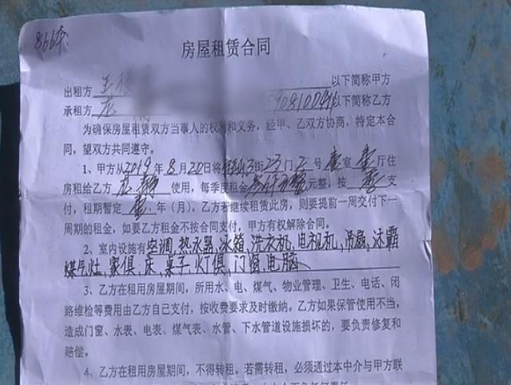 房屋租赁合同
出租方 王 以下简称甲方
承租方 以下简称乙方
为确保房屋租赁双方当事人的权利和义务，经甲、乙双方协商，特定本合
同，望双方共同遵守。
1、甲方从2019年8月20日将 街23门 号 室 厅住
房给乙方 使用，每季度租金 元整，按 支
付，租期暂定 年（月）。乙方若继续租赁此房，则要提前一周交付下一
周期的租金，如要乙方租金不按合同支付，甲方有权解除合同。
2、室内设施有空调，热水器，冰箱，洗衣机，电视机，吊扇，浴霸
煤气灶，家俱，床，桌子，灯俱，门窗，电脑
3、乙方在租用房屋期间，所用水、电、煤气、物业管理、卫生、电话、闭
路维检等费用由乙方自己支付，按收费要求及时缴纳。乙方如果保管使用不当，
造成门窗、水表、电表、煤气表、水管、下水管道设施损坏的，要负责修复和
赔偿。
4、乙方在租用房屋期间，不得转租。若需转租，必须通过本中介与甲方联